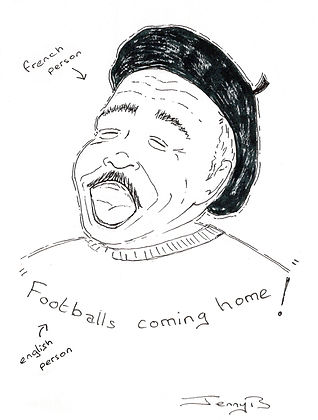 french
person
"Footballs coming home! "
english
person
JennyB